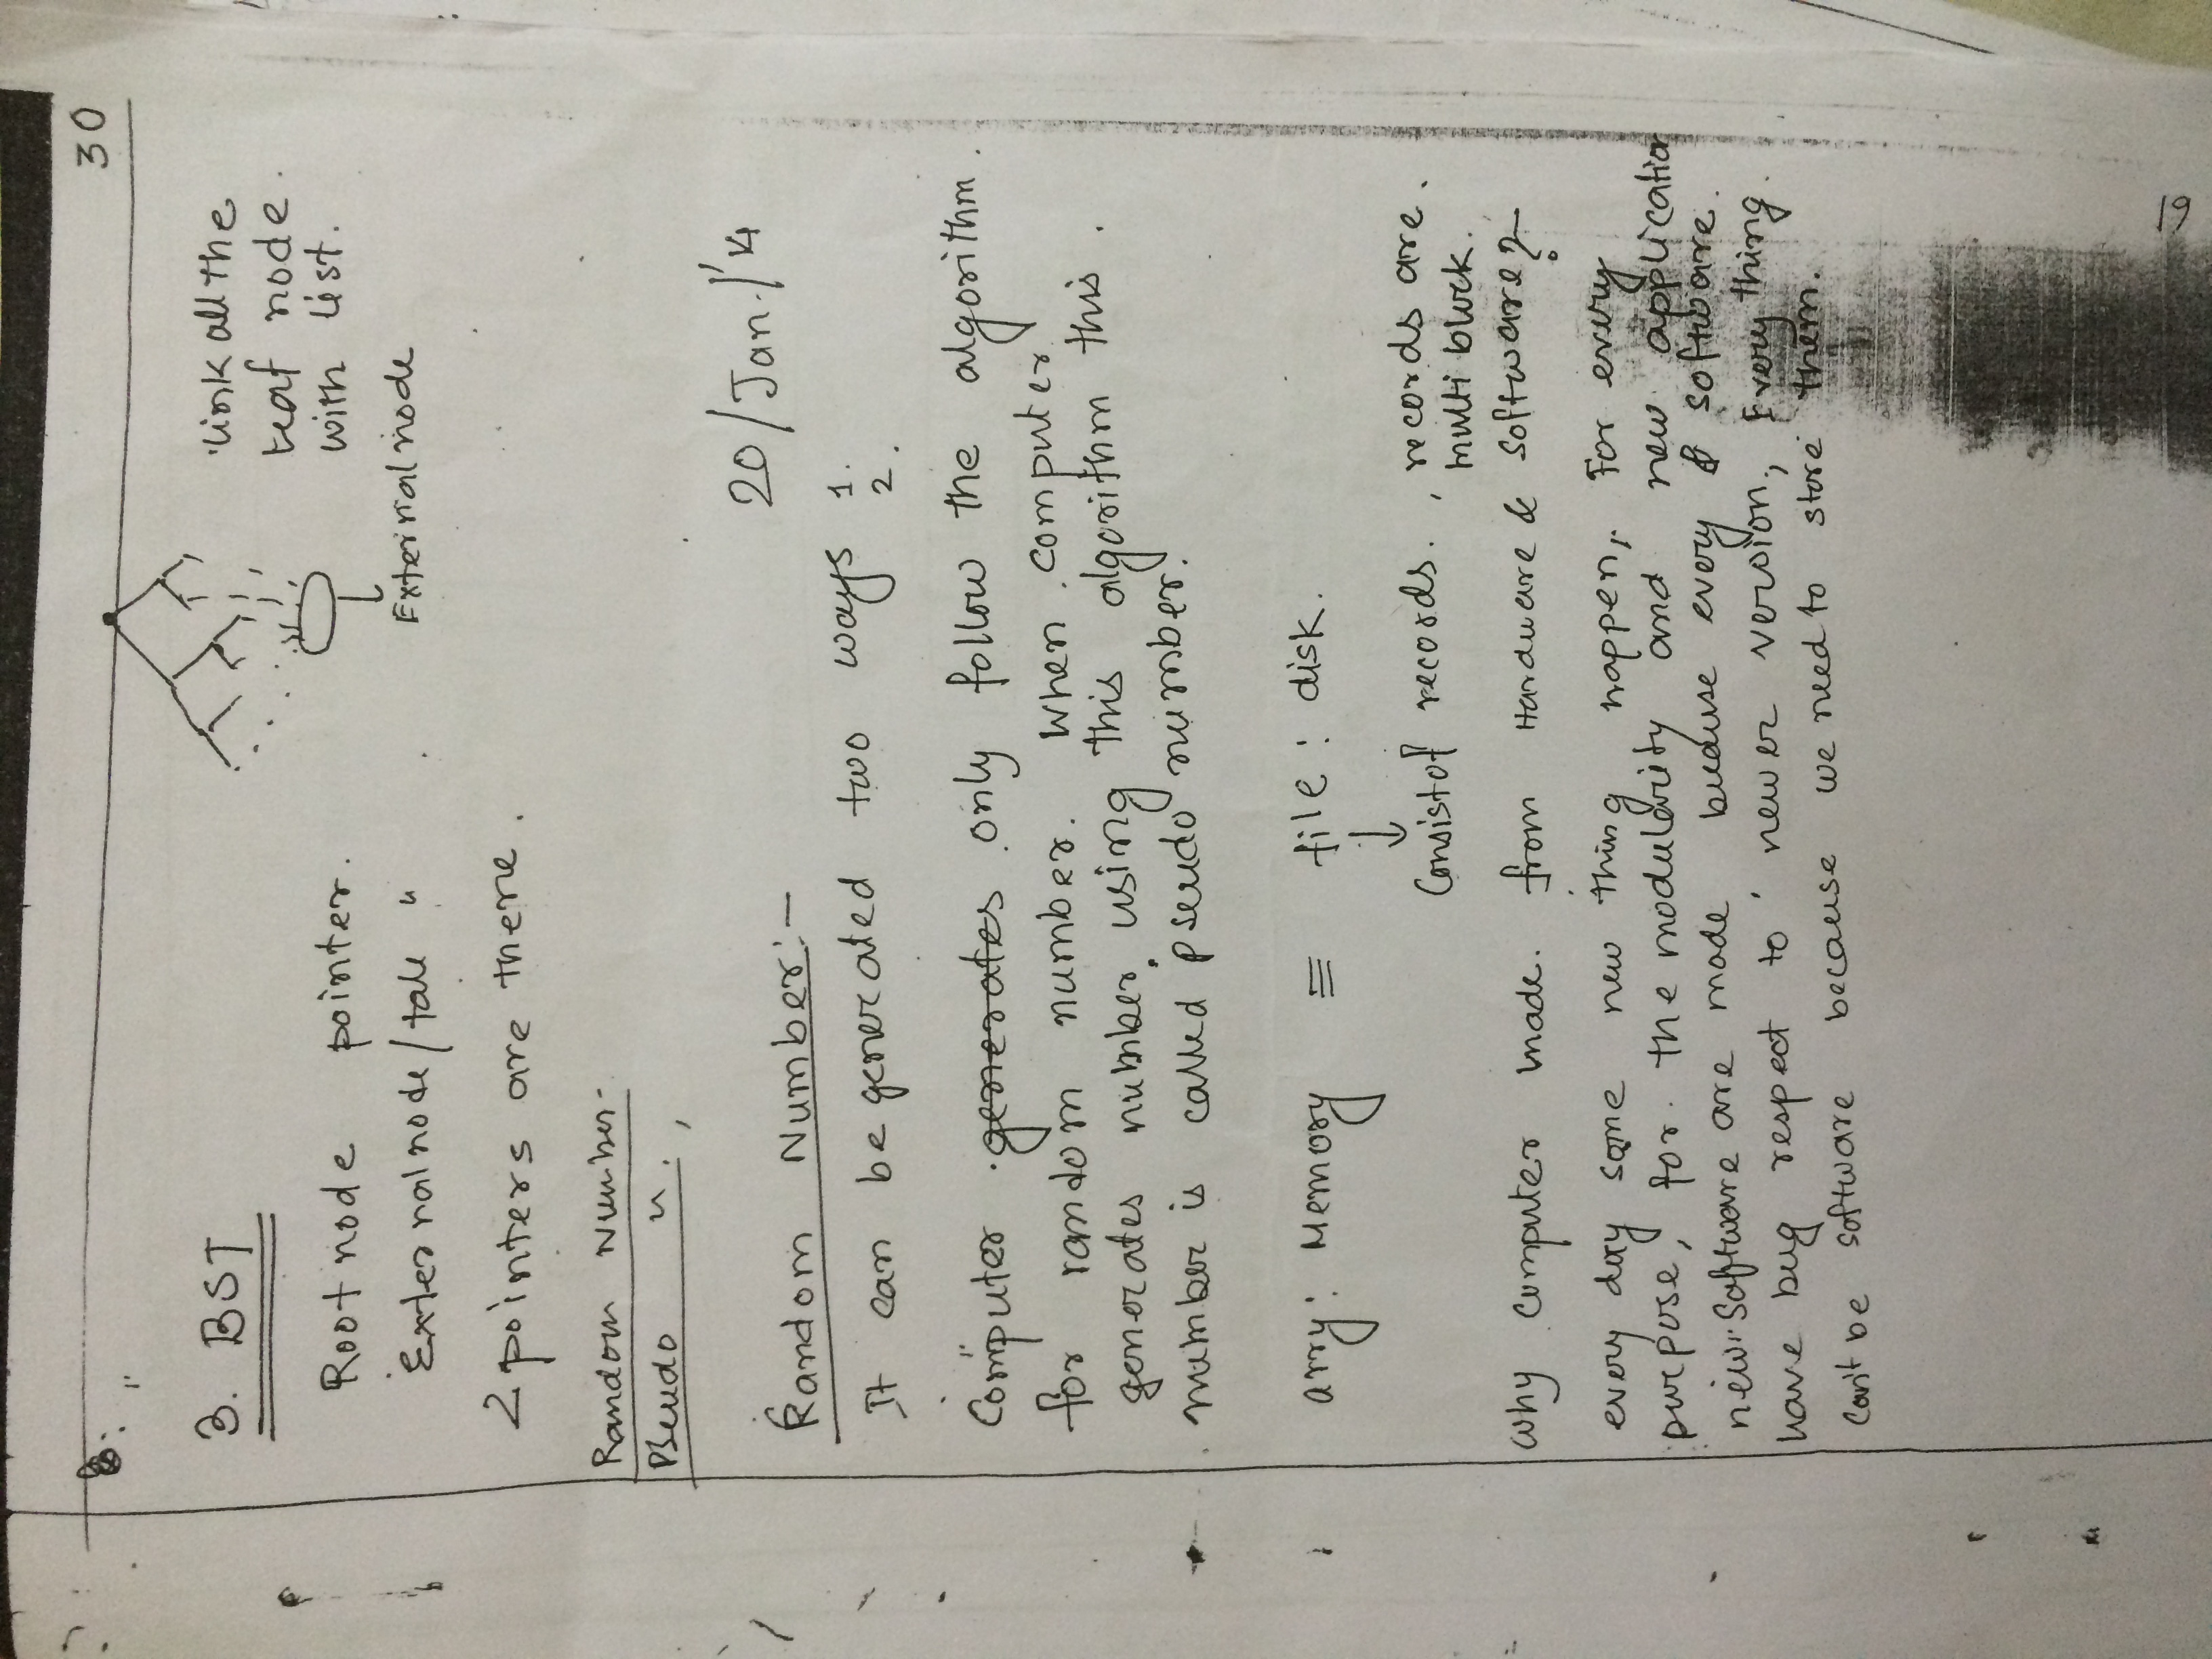 30
3. BST
Link all the
leaf node.
with list.
Root node pointer.
External node/tail "
External node
2 pointers are there.
Random Number-
Pseudo ".,
20/Jan./'14
Random Number:-
It can be generated two ways 1.
2.
Computer generates only follow the algorithm.
for random number. When computer
generates number using this algorithm this.
number is called pseudo number.
arry: Memory ≡ file: disk.
↓
Consist of records., records are.
multi block.
Why computer made. from Hardware & Software?
every day some new thing happen,. For every
purpose, for the modularity and new application
new software are made because every software.
have bug respect to newer version., Every thing.
can't be software because we need to store them.